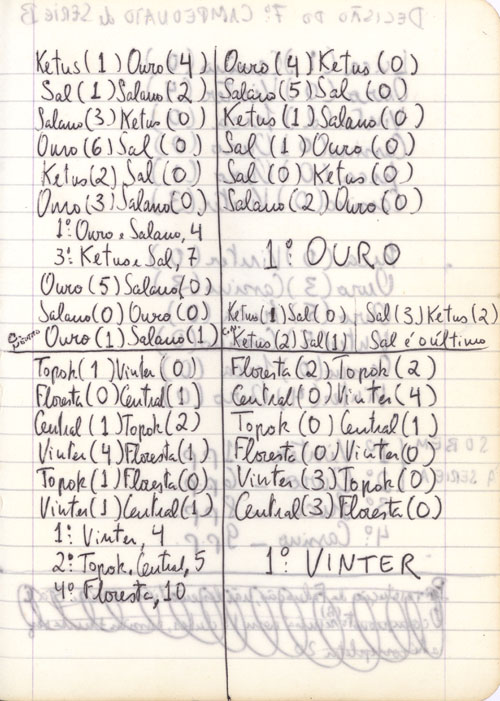 DECISÃO DO 7º CAMPEONATO de SÉRIE B
Ketus (1) Ouro (4)
Sal (1) Salano (2)
Salano (3) Ketus (0)
Ouro (6) Sal (0)
Ketus (2) Sal (0)
Ouro (3) Salano (0)
1º: Ouro e Salano, 4
3º: Ketus e Sal, 7
Ouro (5) Salano (0)
Salano (0) Ouro (0)
Ouro (1) Salano (1)
Ouro (4) Ketus (0)
Salano (5) Sal (0)
Ketus (1) Salano (0)
Sal (1) Ouro (0)
Sal (0) Ketus (0)
Salano (2) Ouro (0)
1º: OURO
Ketus (1) Sal (0) Sal (3) Ketus (2)
Ketus (2) Sal (1) Sal é o último
Topok (1) Vinter (0)
Floresta (0) Central (1)
Central (1) Topok (2)
Vinter (4) Floresta (1)
Topok (1) Floresta (0)
Vinter (1) Central (1)
1º: Vinter, 4
2º: Topok e Central, 5
4º: Floresta, 10
Floresta (2) Topok (2)
Central (0) Vinter (4)
Topok (0) Central (1)
Floresta (0) Vinter (0)
Vinter (3) Topok (0)
Central (3) Floresta (0)
1º: VINTER